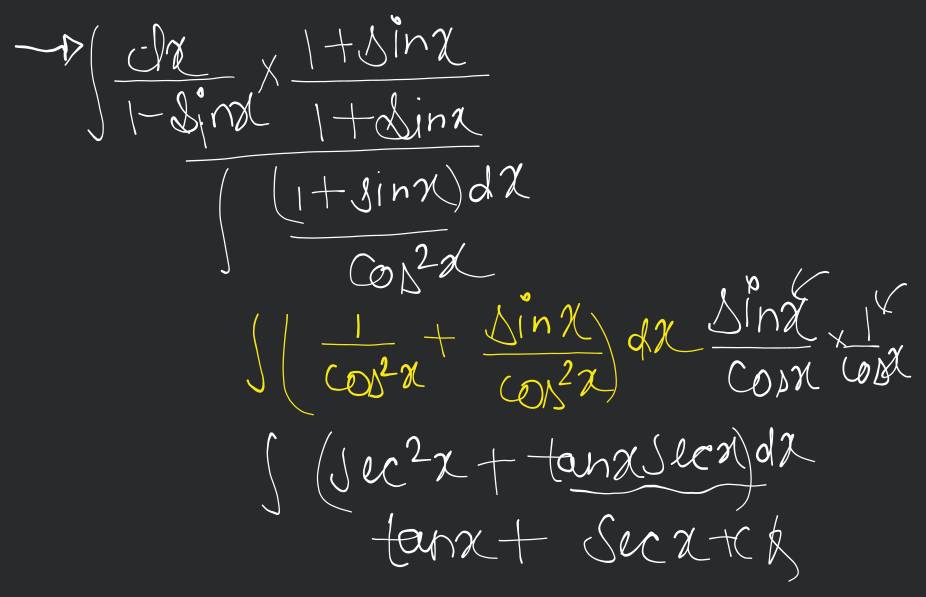 → ∫ dx/(1-sinx) × (1+sinx)/(1+sinx)
∫ (1+sinx)dx/cos²x
∫ (1/cos²x + sinx/cos²x) dx sinx/cosx × 1/cosx
∫ (sec²x + tanxsecx)dx
tanx + secx + c